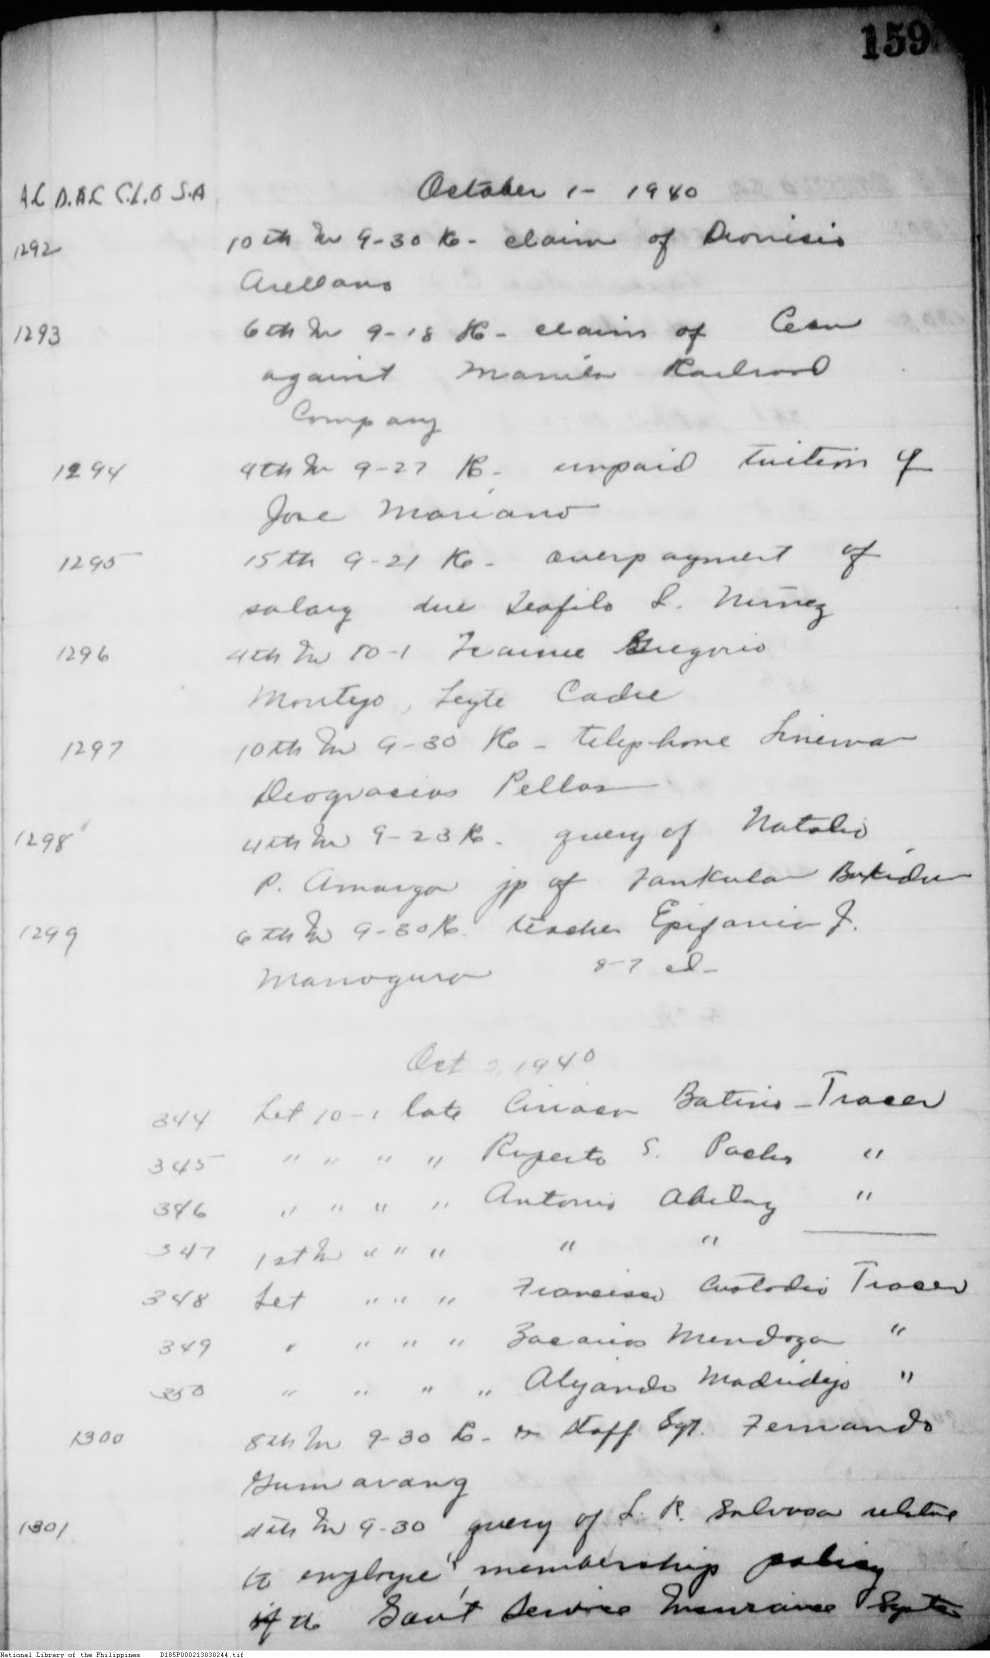 159
A.C D.A.C C.L.O S.A
October 1 - 1940
1292 10th In 9-30 Re - claim of Dionisio
Arellano
1293 6th In 9-18 Re - claim of Cesar
against Manila Railroad
Company
1294 9th In 9-27 Re - unpaid tuition of
Jose Mariano
1295 15th 9-21 Re - overpayment of
salary due Teofilo L. Nuñez
1296 4th In 10-1 Trainee Gregorio
Montejo, Leyte Cadre
1297 10th In 9-30 Re - telephone lineman
Deogracias Pellos
1298 4th In 9-23 Re - query of Natalio
P. Amarga jp of Tankulan Bukidnon
1299 6th In 9-30 Re teacher Epifania J.
8-7 ed-
Oct 2, 1940
344 Let 10-1 late Batino - Tracer
345 " " " " Ruperto S. "
346 " " " " Antonio Abilay "
347 1st In " " " " "
348 Let " " " Francisco Custodio Tracer
349 " " " " Zacarias Mendoza "
350 " " " " Alejandro Madridejo "
1300 8th In 9-30 Re - Staff Sgt. Fernando
Gumarang
1301 4th In 9-30 query of L. R. Salvosa relative
to employe's membership policy
of the Gov't Service Insurance System
National Library of the Philippines D185P000213830244.tif